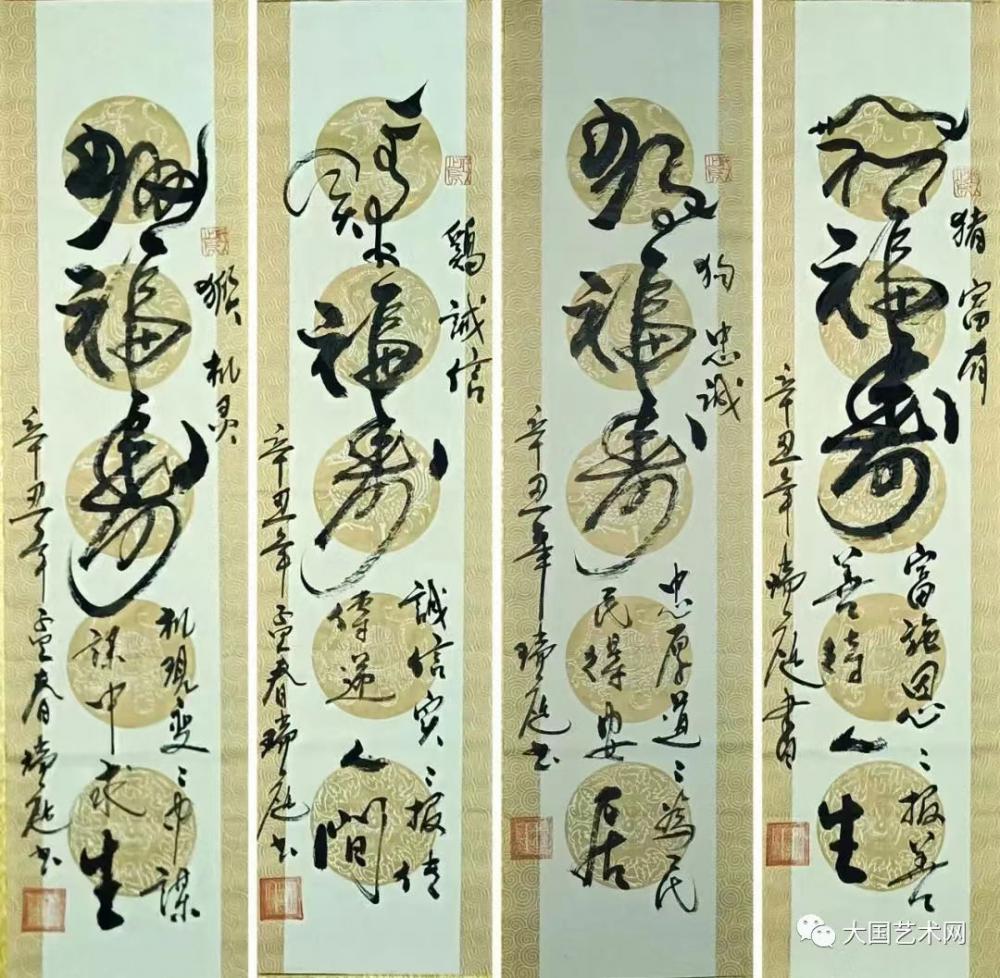 福寿
猴 机灵
机现变々中谋
谋中求生
辛丑年孟春瑞庭书
福寿
鷄 誠信
誠信实々报传
传递人间
辛丑年孟春瑞庭书
狗福寿
狗 忠诚
忠厚道々为民
民得安居
辛丑年瑞庭书
福寿
猪 富有
富施恩々报善
善待人生
辛丑年瑞庭书
大国艺术网